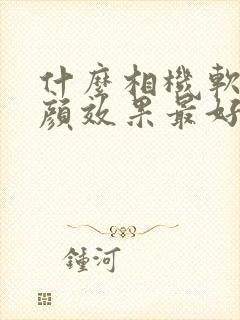 什麼相機軟
顏效果最好
鍾河